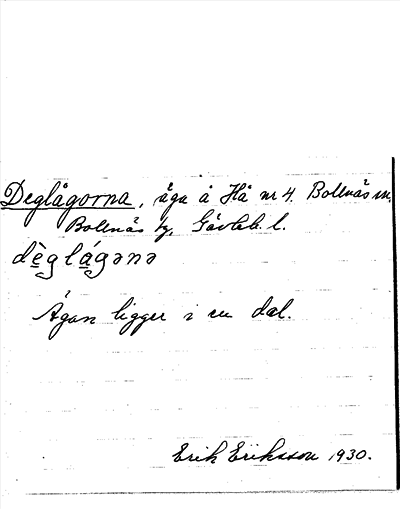 Deglågorna, äga å Hå nr 4. Bollnäs sn,
Bollnäs tg, Gävleb. l.
dèglágənə
Ägan ligger i en dal.
Erik Eriksson 1930.